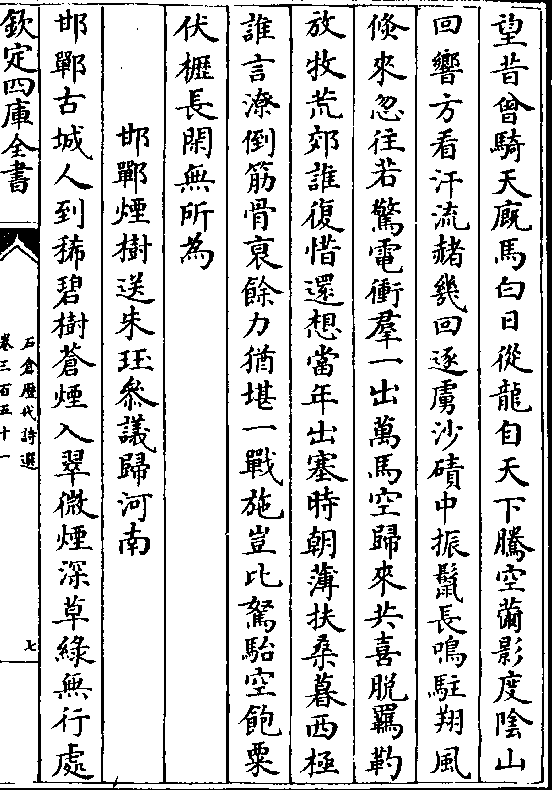 望昔曾騎天廐馬白日從龍自天下騰空躡影度陰山
回響方看汗流赭幾回逐虜沙磧中振鬛長鳴駐翔風
倏來忽往若驚電衝羣一出萬馬空歸來共喜脫羈靮
放牧荒郊誰復惜還想當年出塞時朝薄扶桑暮西極
誰言潦倒筋骨衰餘力猶堪一戰施豈比駑駘空飽粟
伏櫪長閑無所為
邯鄲煙樹送朱珏叅議歸河南
邯鄲古城人到稀碧樹蒼煙入翠微煙深草綠無行處
欽定四庫全書
石倉歷代詩選
卷三百五十一
七